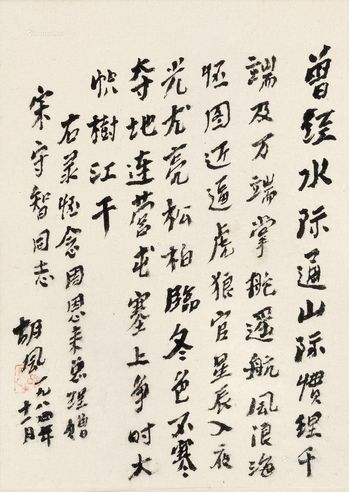 曾经水际通山际惯理千
端及万端掌舵遥航风浪海
近逼虎狼官星辰入夜
光尤亮松柏临冬色不寒
夺地连营塞上争时大
帜树江干
右录怀念周恩来总理赠
宋守智同志
胡风
一九八四年
十一月